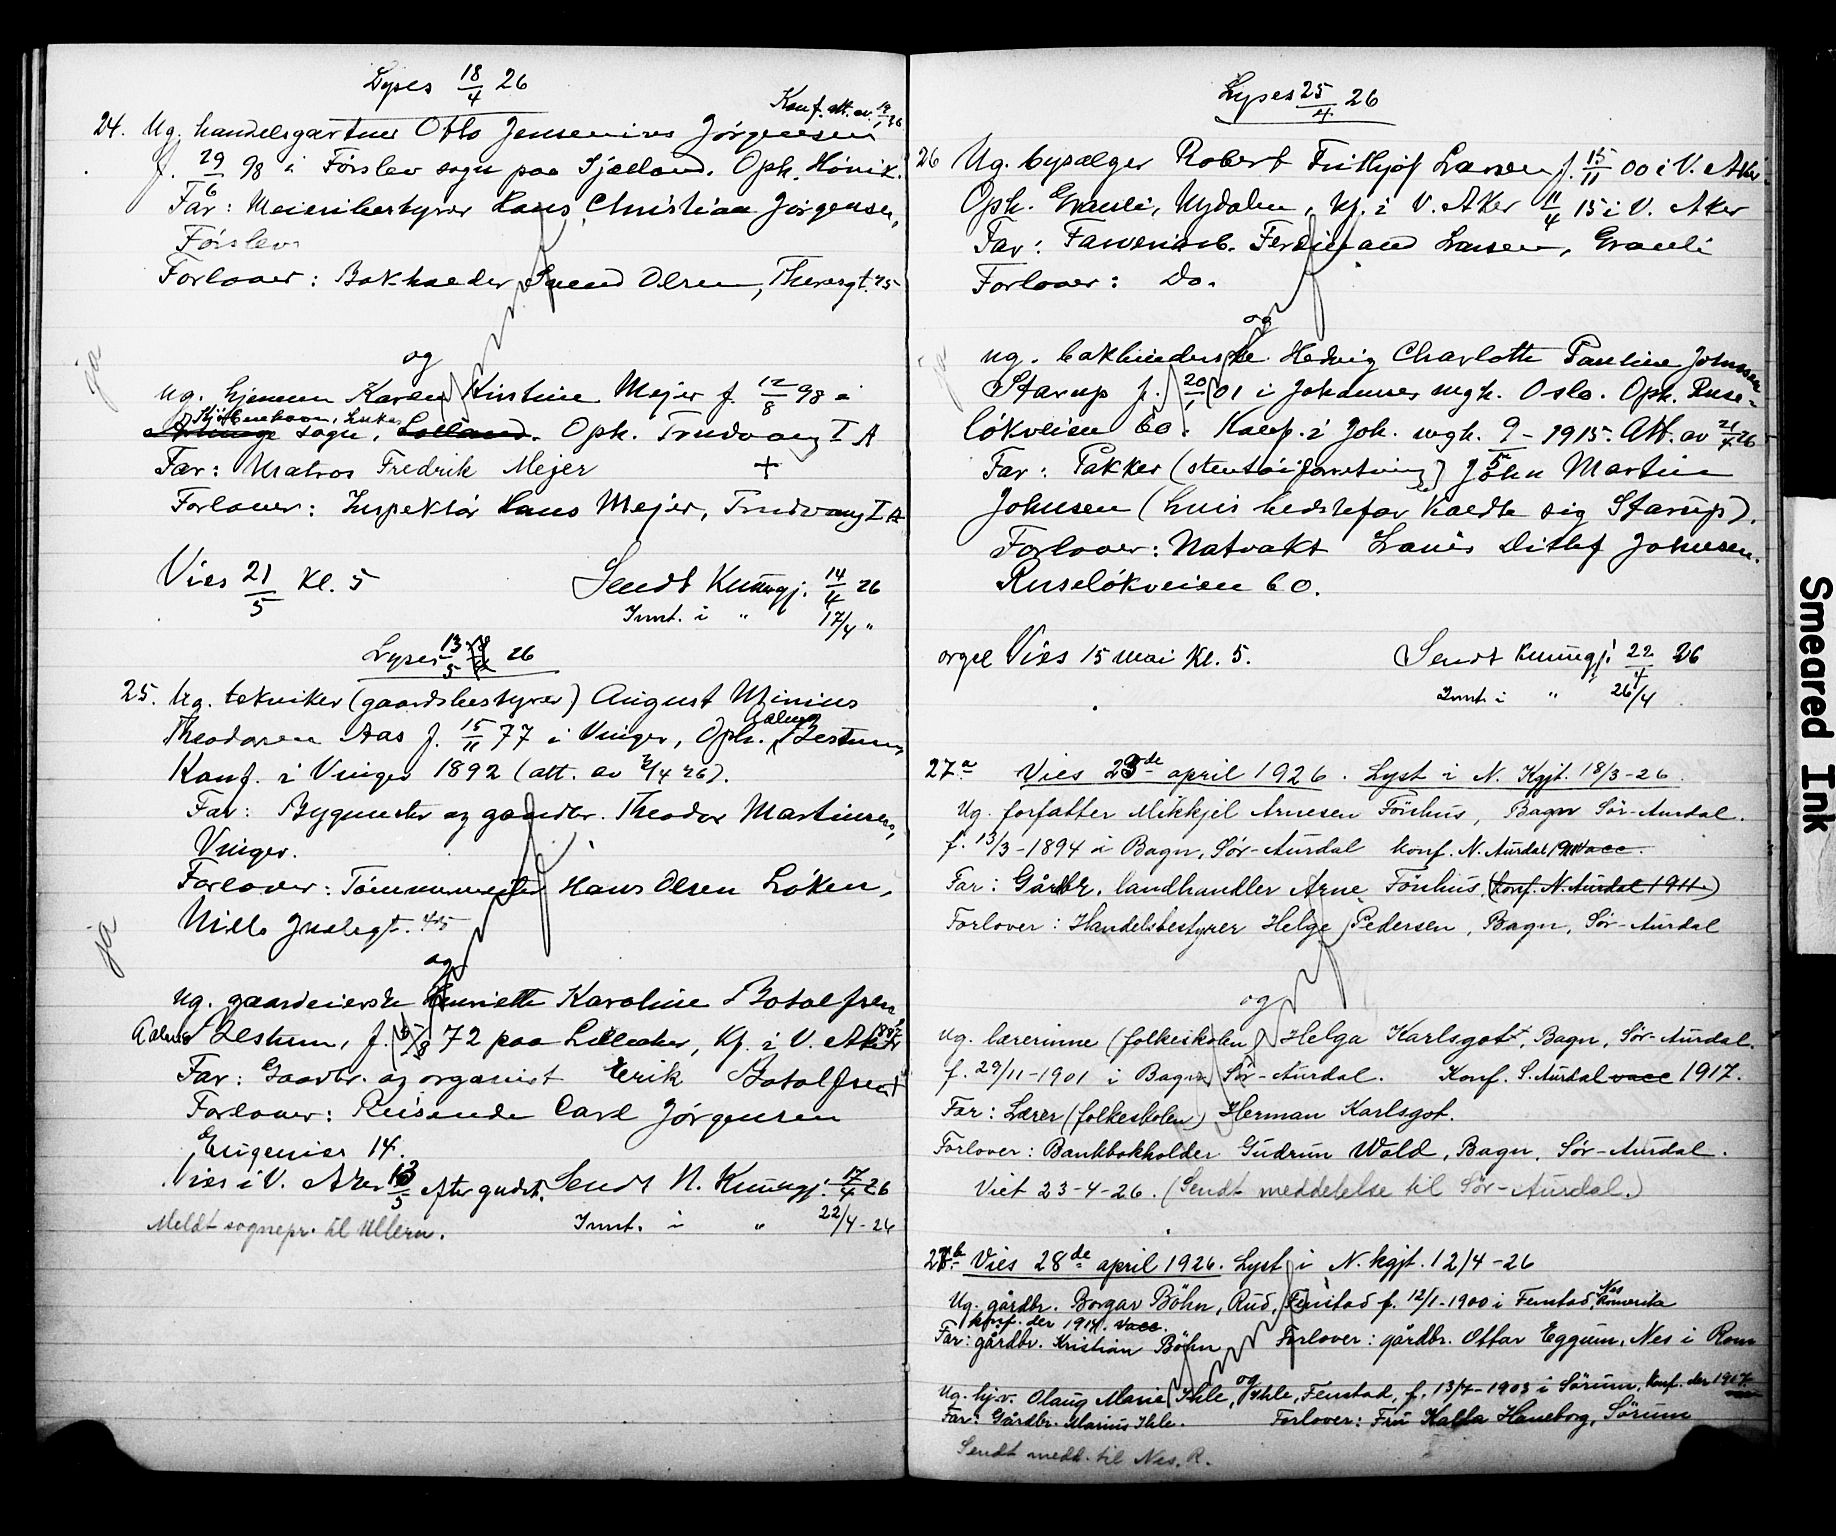 Lyses 18/4 26
Konf. att. av 14/1 26
24. Ug. handelsgartner Otto Jensenius Jørgensen
f. 29/6 98 i Førslev sogn paa Sjælland. Oph.
Far: Meieribestyrer Hans Christian Jørgensen,
Førslev
Forlover: Bokholder Svend Olsen, Theresgt. 45
og
ug. hjemmev Karen Kirstine Mejer f. 12/8 98 i
Kjøbenhavn, Lukas
sogn, Lolland. Oph. Trudvang I A
Far: Matros Fredrik Mejer +
Forlover: Inspektør Hans Mejer, Trudvang I A
Vies 21/5 Kl. 5 Sendt Kunngj. 14/4 26
Innt. i " 17/4 "
Lyses 13/5 26
25. Ug. tekniker (gaardsbestyrer) August Minius
Theodoren Aas f. 15/11 77 i Vinger, Oph. Bestum,
Konf. i Vinger 1892 (att. av 3/4 26).
Far: Bygmester og gaardbr. Theodor Martinsen,
Vinger.
Forlover: Tømmermester Hans Olsen Løken,
Niels Juelsgt. 45
og
ug. gaardeierske Henriette Karoline Botolfsen
Bestum, f. 5/8 72 paa Lilleaker, kf. i V. Aker 1887
Far: Gaardbr. og organist Erik Botolfsen +
Forlover: Reisende Carl Jørgensen
Eugenies 14.
Vies i V. Aker 13/5 efter gudst. Sendt N. Kunngj. 17/4 26
Meldt sognepr. til Ullern. Innt. i " 22/4 - 26
ja
ja
Lyses 25/4 26
26 Ug. bysælger Robert Frithjof Larsen f. 15/11 00 i V. Aker
Oph. Granli, Nydalen, kf. i V. Aker 11/4 15 i V. Aker
Far: Farveriarb. Ferdinand Larsen, Granli
Forlover: Do.
og
ug. bokbinderske Hedvig Charlotte Pauline Johnsen
Starup f. 20/1 01 i Johannes mgh. Oslo. Oph. Ruse-
løkveien 60. Konf. i Joh. mgh. 9/5 - 1915. Att. av 21/4 26
Far: Pakker (stentøiforretning) John Martin
Johnsen (hvis bedstefar kaldte sig Starup).
Forlover: Natvakt Lauis Ditlef Johnsen.
Ruseløkveien 60.
orgel Vies 15 mai Kl. 5. Sendt Kunngj. 22/4 26
Innt. i " 26/4
ja
27a Vies 23de april 1926. Lyst i N. Kgjt. 18/3-26.
Ug. forfatter Mikkjel Arnesen Fønhus, Bagn Sør-Aurdal.
f. 13/3-1894 i Bagn, Sør-Aurdal konf. N. Aurdal 1911 vacc.
Far: Gårdbr. landhandler Arne Fønhus, (konf. N. Aurdal 1911.)
Forlover: Handelsbestyrer Helge Pedersen, Bagn, Sør-Aurdal
og
ug. lærerinne (folkeskolen) Helga Karlsgot, Bagn, Sør-Aurdal.
f. 29/11-1901 i Bagn, Sør-Aurdal. Konf. S. Aurdal vacc 1917.
Far: Lærer (folkeskolen) Herman Karlsgot.
Forlover: Bankbokholder Gudrun Wold, Bagn, Sør-Aurdal.
Viet 23-4-26. (Sendt meddelelse til Sør-Aurdal.)
27b Vies 28de april 1926. Lyst i N. kgjt. 12/4-26
Ug. gårdbr. Borgar Bøhn, Rud, Fenstad f. 12/1-1900 i Fenstad, Nes Romerike
konf. der 1914. vacc.
Far: gårdbr. Kristian Bøhn Forlover: gårdbr. Ottar Eggum, Nes i Rom
og
Ug. hj.v. Olaug Marie Ihle, Ihle, Fenstad, f. 13/7-1903 i Sørum, konf. der 1917
Far: Gårdbr. Marius Ihle. Forlover: Fru Kalla Haneborg, Sørum
Sendt medd. til Nes. R.
Smeared Ink